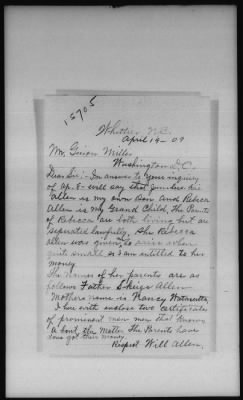 15705
Whittier N.C.
April 14-09
Mr. Guion Miller
Washington D.C.
Dear Sir:- In answer to your inquiry
of Ap. 8- will say that
Allen is my own Son and Rebecca
Allen is my Grand Child, The Parents
of Rebecca are both living but are
seperated lawfully, She Rebecca
Allen was given to when
quite small so I am entitled to her
money.
The names of her parents are as
follows Father Allen
Mothers name is Nancy
I here with enclose two certificates
of prominent men men that knows
about the matter The Parents have
done got their money
Respect Will Allen.